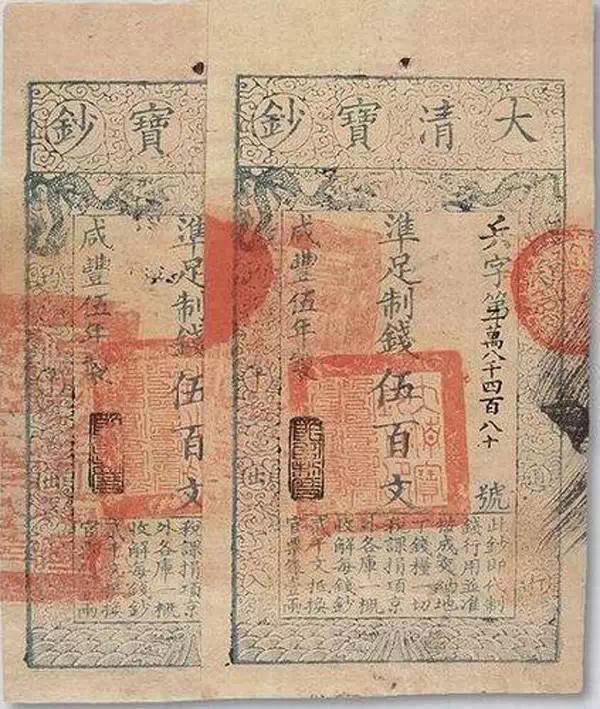 大清寶鈔
兵字第萬八千四百八十號
準足制錢伍百文
咸豐伍年製
此鈔即代制
錢行用並准
按成交納地
丁錢糧一切
稅課捐項京
外各庫一概
收解每錢鈔
貳千文抵換
官票銀壹兩
通行
平出入
寶鈔
準足制錢伍百文
咸豐伍年製
稅課捐項京
外各庫一概
收解每錢鈔
貳千文抵換
官票銀壹兩
平出